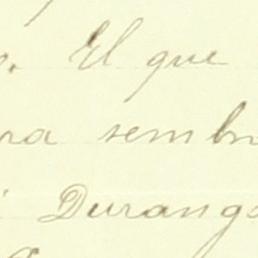 El que
ra sembr
Durango